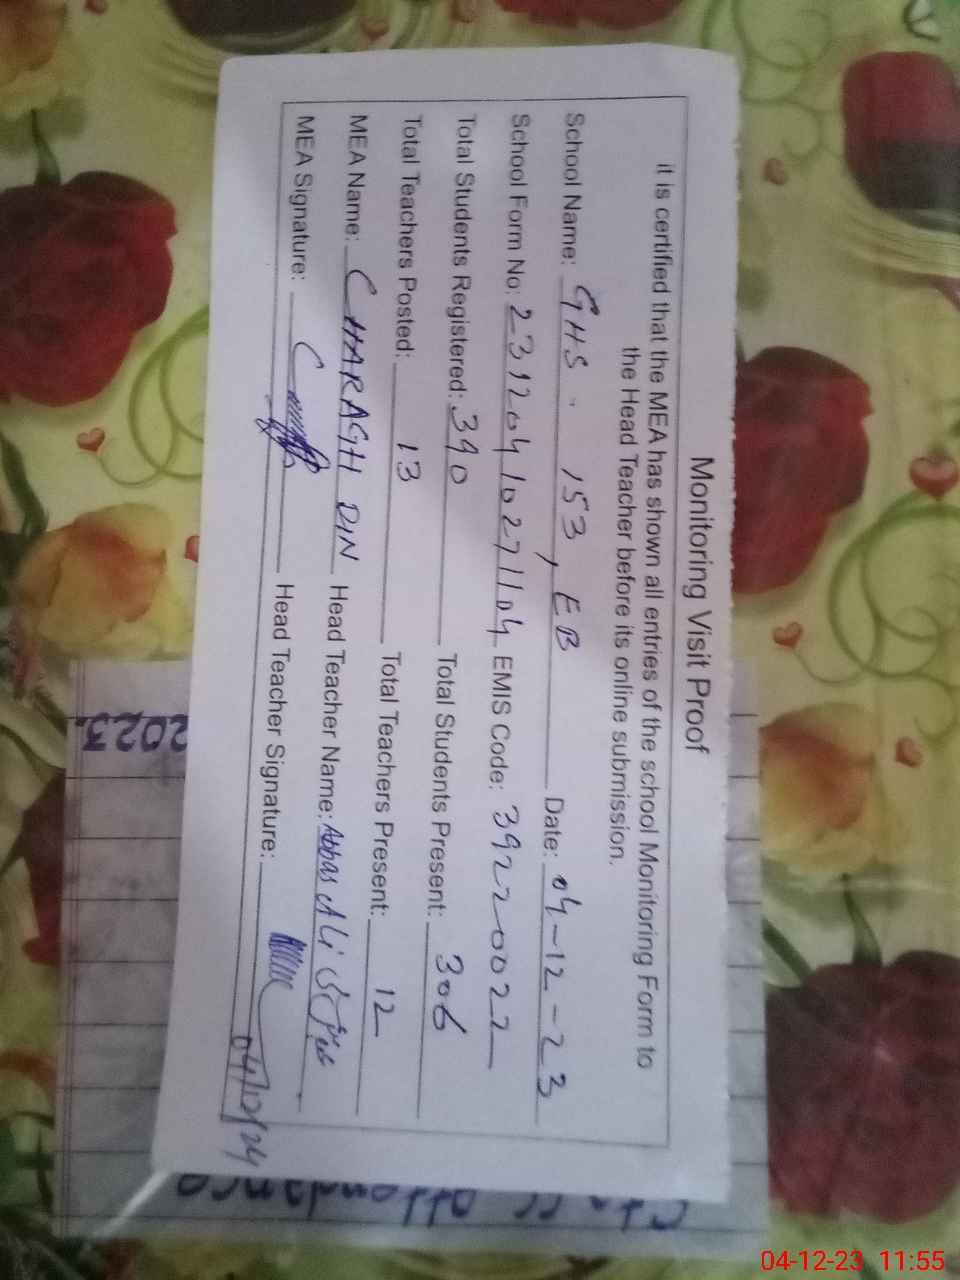 Monitoring Visit Proof
it is certified that the MEA has shown all entries of the school Monitoring Form to
the Head Teacher before its online submission.
School Name: GHS. 153, EB Date: 04-12-23
School Form No: 23120410271104 EMIS Code: 39220022
Total Students Registered: 390 Total Students Present: 306
Total Teachers Posted: 13 Total Teachers Present: 12
MEA Name: CHARAGH DIN Head Teacher Name: Abbas Ali
MEA Signature: Head Teacher Signature:
04/12/24
2023
attendance
04-12-23 11:55